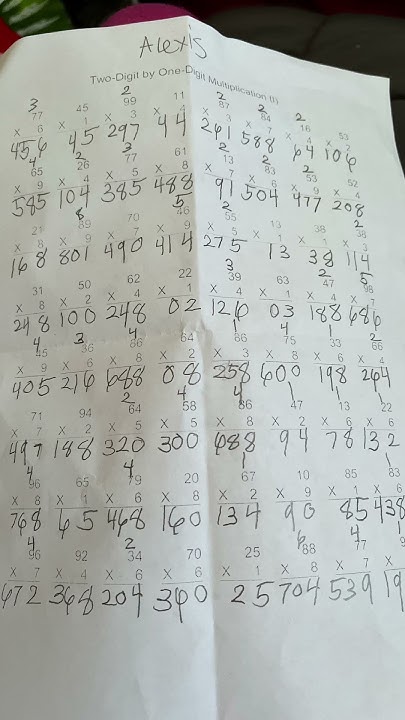 Alexis
Two-Digit by One-Digit Multiplication (I)
3 2 2 2 2
77 45 99 11 87 84 16 53
x 6 x 1 x 3 x 4 x 3 x 7 x 4
456 45 297 44 261 588 64 106
4 2 3 2 2 2
65 26 77 61 13 83 53 52
x 9 x 4 x 5 x 8 x 7 x 6 x 9 x 4
585 104 385 488 91 504 477 208
8 5 2 2
21 89 70 46 55 13 38 38
x 8 x 9 x 7 x 9 x 5 x 1 x 1 x 3
168 801 490 414 275 13 38 114
3 2 5
31 50 62 22 39 63 47 98
x 8 x 2 x 4 x 1 x 4 x 1 x 4 x 7
248 100 248 02 126 03 188 686
4 3 4 1 4 1 2
45 36 86 64 86 75 33 66
x 9 x 6 x 8 x 2 x 3 x 8 x 6 x 4
405 216 688 08 258 600 198 264
2 4 4 1 1 1
71 94 64 58 86 47 13 22
x 7 x 2 x 5 x 5 x 8 x 2 x 6 x 6
497 188 320 300 688 94 78 132
4 4 1 1
96 65 79 20 67 10 85 83
x 8 x 1 x 6 x 8 x 2 x 9 x 1 x 6
768 65 468 160 134 90 85 438
4 2 6 4 1
96 92 34 70 25 88 77 9
x 7 x 4 x 6 x 6 x 1 x 8 x 7 x
672 368 204 360 25 704 539 19